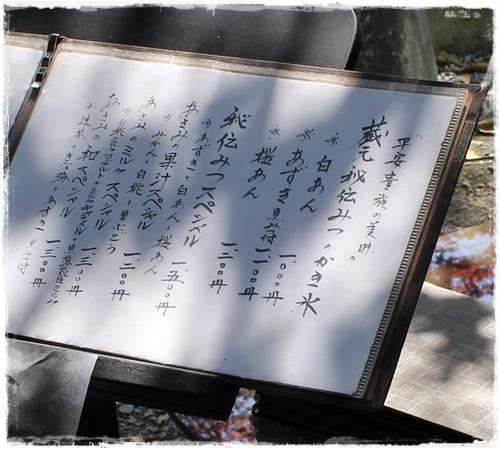 平安貴族の美味
蔵元秘伝みつのかき氷
※ 白あん
※ あずき 黒みつ付 一、〇〇〇円
※ 桜あん 一、一〇〇円
秘伝みつスペシャル 一、三〇〇円
※あずき+白あん+桜あん
あさみの果汁スペシャル 一、五〇〇円
みかん+白桃+黒ぶどう
あさみのミルクスペシャル 一、二〇〇円
あさみの和スペシャル 一、三〇〇円
※抹茶+きな粉+あずき 黒みつ付